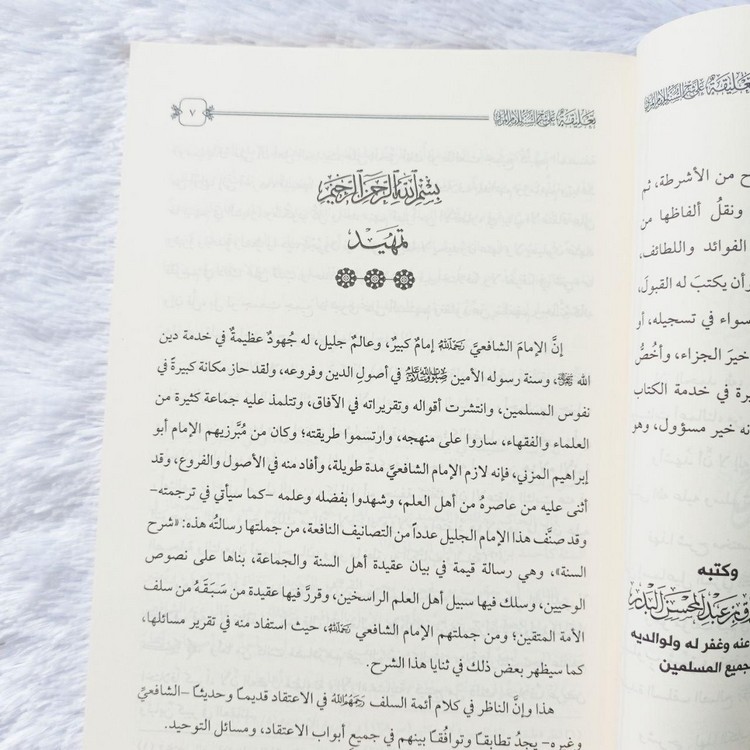 تعليقة على شرح السنة للإمام المزني
٧
بِسْمِ اللهِ الرَّحْمَنِ الرَّحِيمِ
تمهيد
إنَّ الإمامَ الشافعيَّ رَحِمَهُ اللهُ إمامٌ كبيرٌ، وعالمٌ جليل، له جُهودٌ عظيمةٌ في خدمة دين
الله ﷻ، وسنة رسوله الأمين صلوات الله وسلامه عليه في أصولِ الدين وفروعه، ولقد حاز مكانة كبيرةً في
نفوس المسلمين، وانتشرت أقواله وتقريراته في الآفاق، وتتلمذ عليه جماعة كثيرة من
العلماء والفقهاء، ساروا على منهجه، وارتسموا طريقته؛ وكان من مُبَّرزيهم الإمام أبو
إبراهيم المزني، فإنه لازم الإمام الشافعيَّ مدة طويلة، وأفاد منه في الأصول والفروع، وقد
أثنى عليه من عاصرهُ من أهل العلم، وشهدوا بفضله وعلمه -كما سيأتي في ترجمته-
وقد صنَّف هذا الإمام الجليل عدداً من التصانيف النافعة، من جملتها رسالتُه هذه: «شرح
السنة»، وهي رسالة قيمة في بيان عقيدة أهل السنة والجماعة، بناها على نصوص
الوحيين، وسلك فيها سبيل أهل العلم الراسخين، وقررَّ فيها عقيدة من سَبَقَهُ من سلف
الأمة المتقين؛ ومن جملتهم الإمام الشافعي رَحِمَهُ اللهُ، حيث استفاد منه في تقرير مسائلها،
كما سيظهر بعض ذلك في ثنايا هذا الشرح.
هذا وإنَّ الناظر في كلام أئمة السلف رَحِمَهُمُ اللهُ في الاعتقاد قديمًا وحديثًا -الشافعيِّ
وغيره- يجدُ تطابقًا وتوافُقًا بينهم في جميع أبواب الاعتقاد، ومسائل التوحيد.
ح من الأشرطة، ثم
ونقلُ ألفاظها من
الفوائد واللطائف،
وأن يكتبَ له القبولَ،
سواء في تسجيله، أو
خيرَ الجزاء، وأخُصُّ
يرة في خدمة الكتاب
نه خير مسؤول، وهو
وكتبه
عبد المحسن البدر
عنه وغفر له ولوالديه
جميع المسلمين